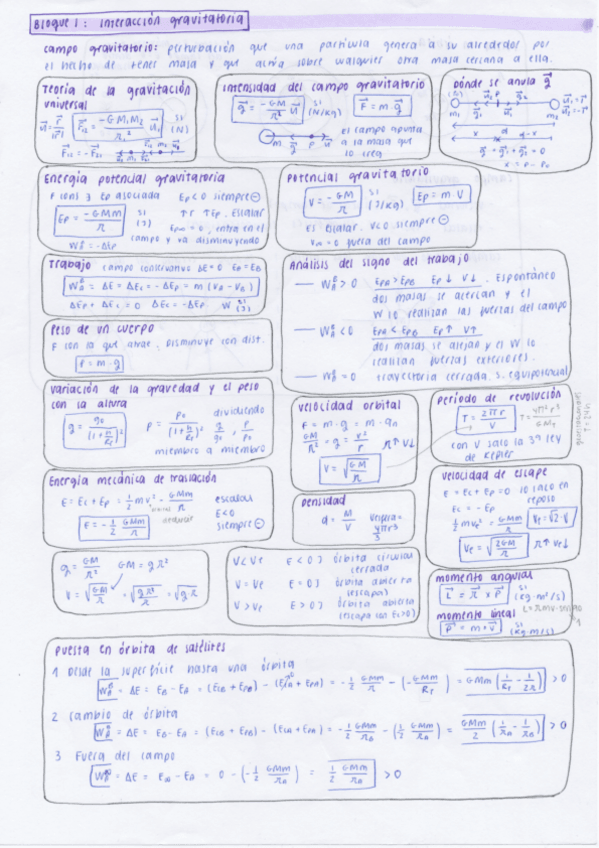 Bloque 1: interacción gravitatoria
campo gravitatorio: perturbación que una partícula genera a su alrededor por
el hecho de tener masa y que actúa sobre cualquier otra masa cercana a ella.
Teoría de la gravitación
universal
F₁₂ = -G M₁ M₂ / r₁² u₁ SI (N)
F₁₂ = -F₂₁
intensidad del campo gravitatorio
g = -GM/r² u SI (N/kg) F = m g
el campo apunta
a la masa que
lo crea
dónde se anula g
g₁ + g₂ = 0
Energía potencial gravitatoria
F cons ∃ Ep asociada Ep<0 siempre ⊖
Ep = -GMm/r SI (J) ↑r ↑Ep. Escalar
Ep∞ = 0, entra en el
W = -ΔEp campo y va disminuyendo
Potencial gravitatorio
V = -GM/r SI (J/kg) Ep = m V
Es escalar. V<0 siempre ⊖
V∞ = 0 fuera del campo
Trabajo campo conservativo ΔE = 0 EA = EB
W = ΔE = ΔEc = -ΔEp = m (VA - VB)
ΔEp + ΔEc = 0 ΔEc = -ΔEp W SI (J)
Análisis del signo del trabajo
W > 0 EpA > EpB Ep↓ V↓. Espontáneo
dos masas se acercan y el
W lo realizan las fuerzas del campo
W < 0 EpA < EpB Ep↑ V↑
dos masas se alejan y el W lo
realizan fuerzas exteriores.
W = 0 trayectoria cerrada, s. equipotencial
Peso de un cuerpo
F con la que atrae, disminuye con dist.
P = m · g
Variación de la gravedad y el peso
con la altura
g = g₀/(1+h/RT)² P = P₀/(1+h/RT)² dividiendo g/g₀, P/P₀
miembro a miembro
velocidad orbital
F = m · g = m · an
GM/R² = g = v²/r R↑ V↓
V = √(GM/R)
Período de revolución
T = 2πr/V T² = 4π²r³/GM
con V sale la 3ª ley
de Kepler
geoestacionarios
T = 24h
Energía mecánica de traslación
E = Ec + Ep = 1/2 mv² - GMm/r escalar
E<0
E = -1/2 GMm/r siempre ⊖
densidad
d = M/V Vesfera = 4πr³/3
velocidad de escape
E = Ec + Ep = 0 lo lanzo en
reposo
Ec = -Ep
1/2 mve² = GMm/R Ve = √2 · V
Ve = √(2GM/R) R↑ Ve↓
g = GM/r² GM = g r²
V = √(GM/r) = √(gr²/r) = √(g r)
V < Ve E < 0 } órbita circular
cerrada
V = Ve E = 0 } órbita abierta
(escapa)
V > Ve E > 0 } órbita abierta
(escapa con Ec>0)
momento angular
L = r × P SI (kg·m²/s)
momento lineal
P = m · v SI (kg·m/s)
Puesta en órbita de satélites
1 Desde la superficie hasta una órbita
W = ΔE = EB - EA = (EcB + EpB) - (EcA + EpA) = -1/2 GMm/r - (-GMm/RT) = GMm (1/RT - 1/2r) > 0
2 cambio de órbita
W = ΔE = EB - EA = (EcB + EpB) - (EcA + EpA) = -1/2 GMm/rB - (-1/2 GMm/rA) = GMm/2 (1/rA - 1/rB) > 0
3 Fuera del campo
W = ΔE = E∞ - EA = 0 - (-1/2 GMm/rA) = 1/2 GMm/rA > 0